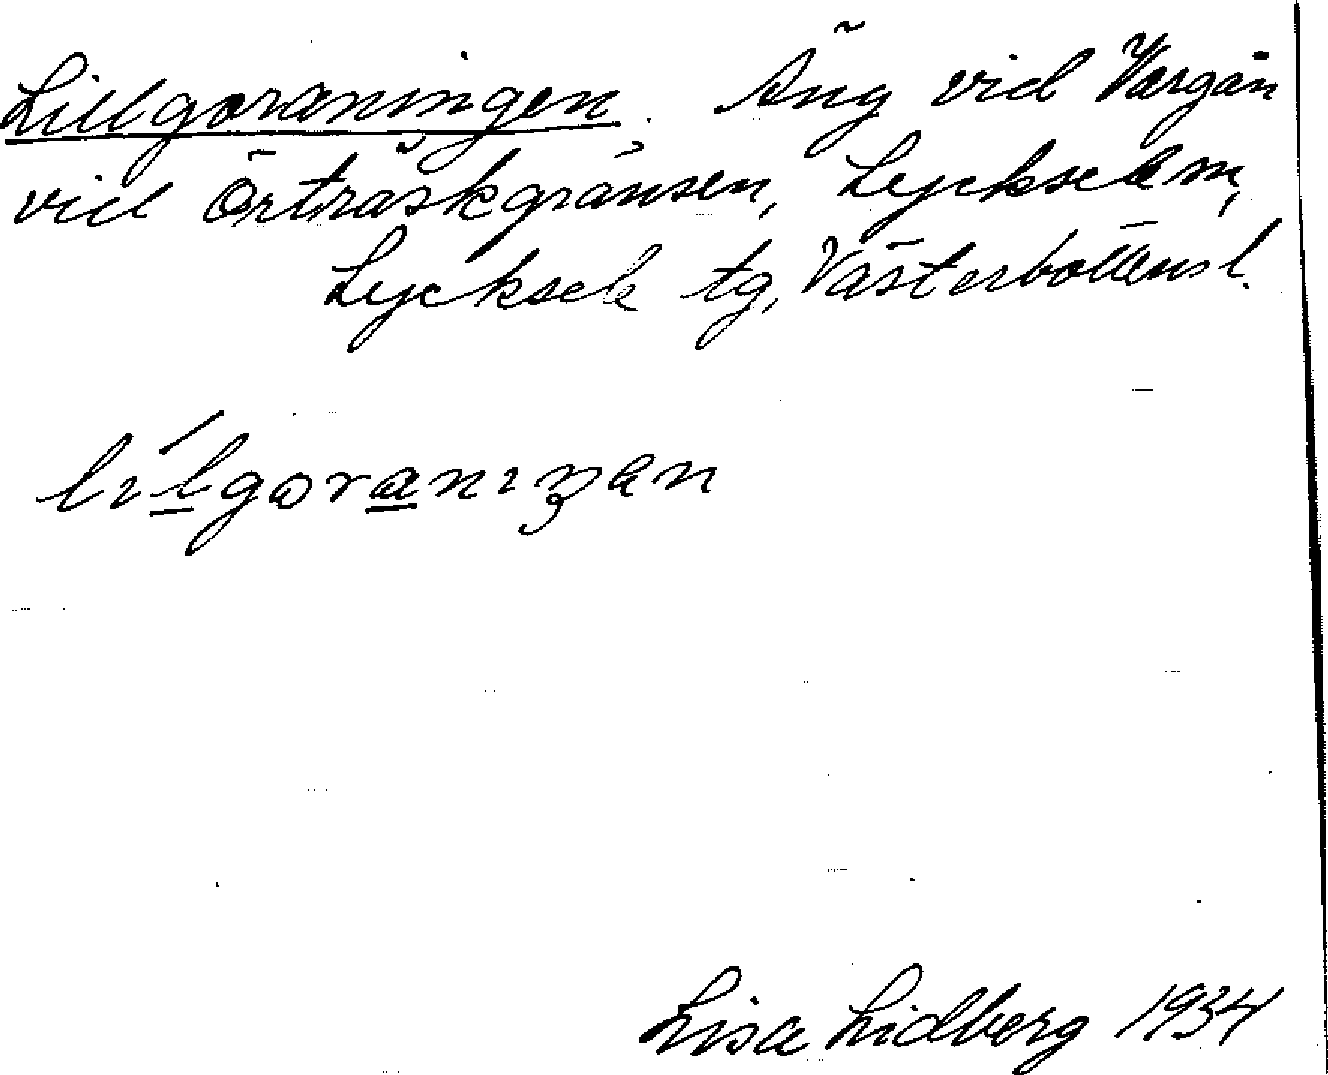 Lillgoraningen. Äng vid Vargån
vid Örträskgränsen, Lycksele sn,
Lycksele tg, Västerbottens l.
lılgoranıŋen
Lisa Lidberg 1934